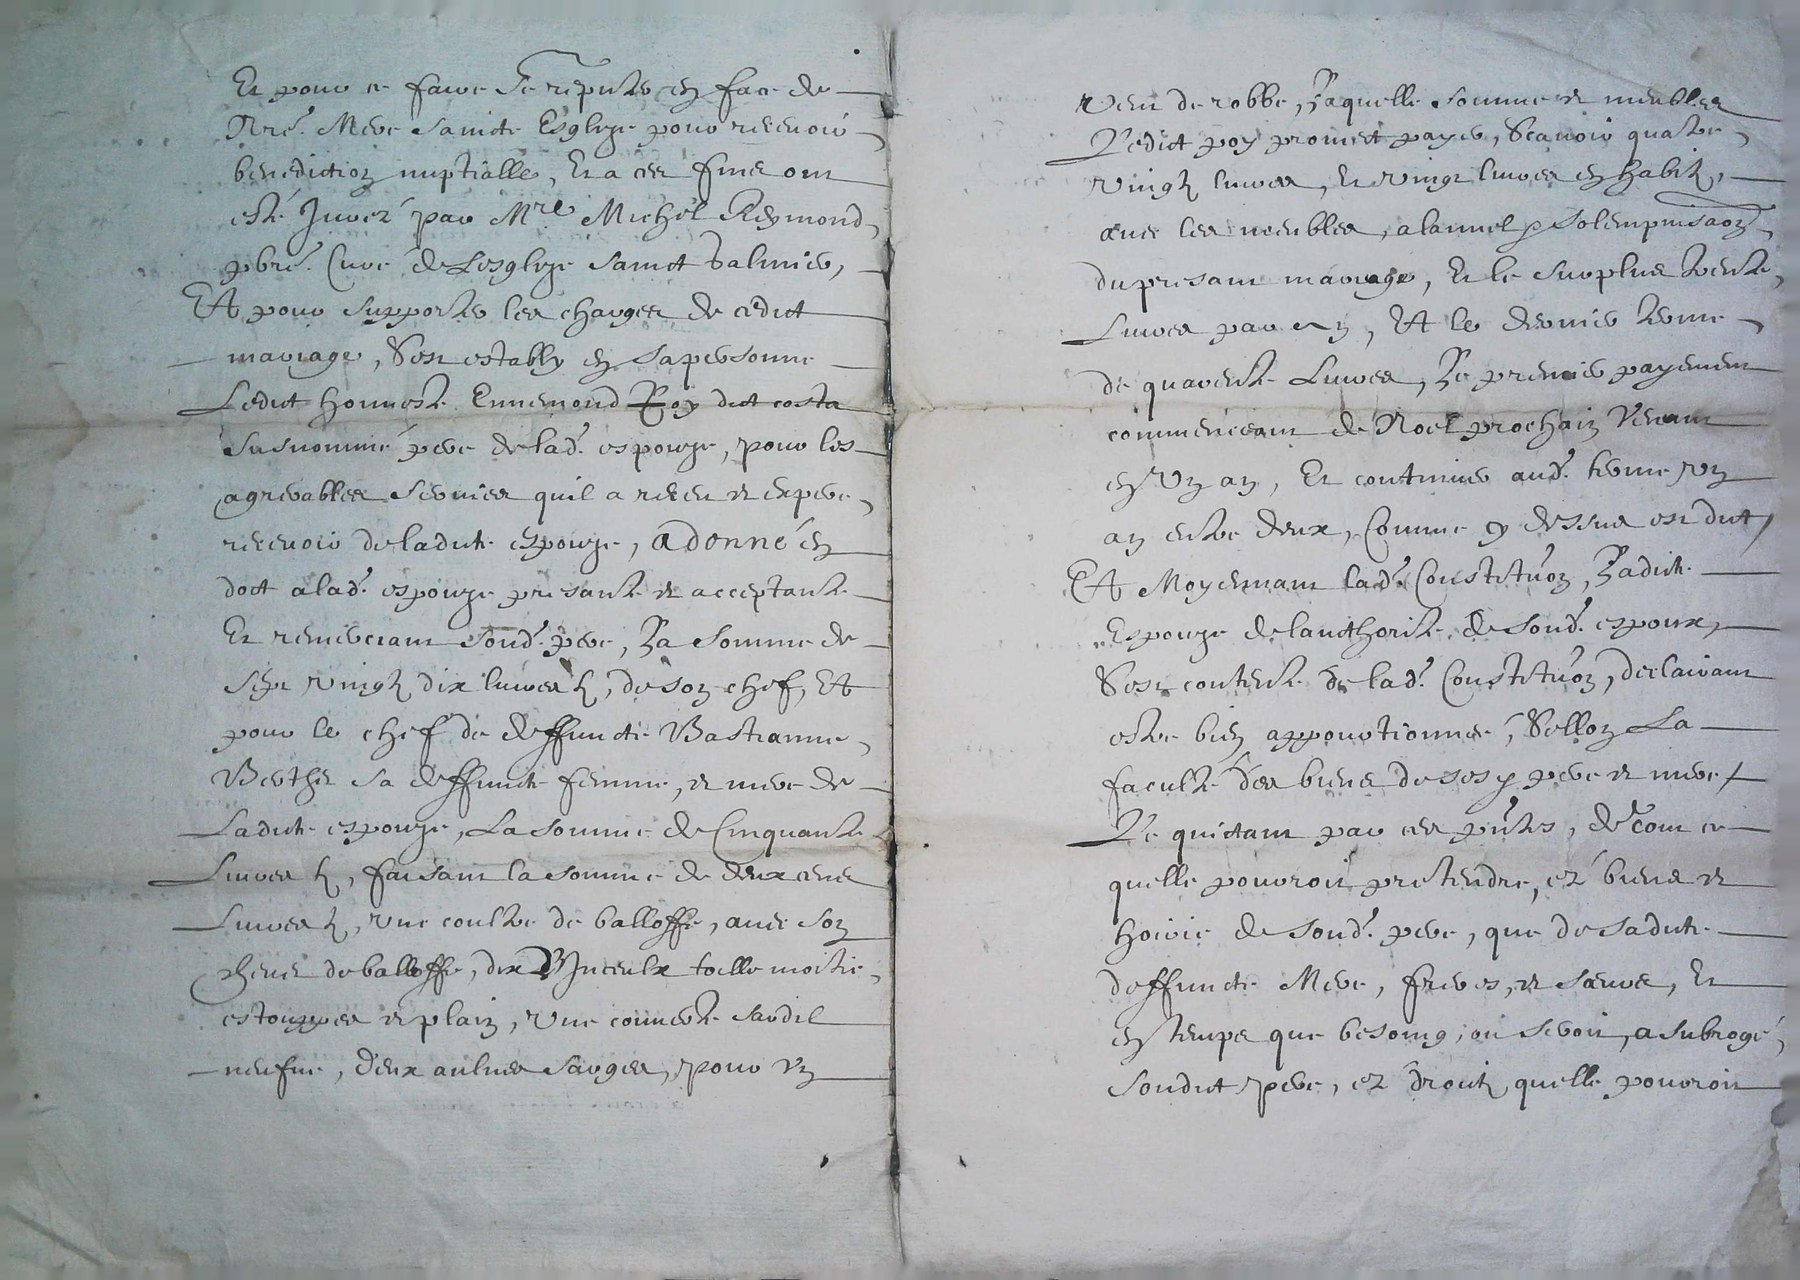 Et pour ce faire se repnter en face de
Nre. Mere Saincte Esglize pour recevoir
benediction nuptialle, Et a ces fins ont
esté Jures par Mre Michel Reymond
pbre. Curé de Lesglize Sainct Galmier,
Et pour supporter les charges de cedict
mariage, Sest estably en sa personne
Ledict honneste Ennemond Roy dict costa
susnommé pere de lad. espouze, pour les
agreables services quil a receu et expere
recevoir de ladicte espouze, a donné en
dot a lad. espouze presante et acceptante
Et remerciant sond. pere, La somme de
Sept vingtz dix livres tz, de son chef, Et
pour le chef de deffuncte Bastianne
Berthet sa deffuncte femme, et mere de
Ladicte espouze, La somme de Cinquante
Livres tz, faisant la somme de deux cens
Livres tz, une coultre de balloffe, avec son
chevet de balloffe, dix Linceulx toille moitie
estouppes et plain, une couverte sardil
neufve, deux aulnes sarges, pour un
vent de robbe, Laquelle somme et meubles
Ledict Roy promect payer, Scavoir quatre
vingtz livres, Et vingt livres en habitz,
avec les meubles, a lannel et solempnisaon
du presant mariage, Et le surplus trente
Livres par an, Et le dernier terme
de quarente Livres, Le premier payement
commenceant de Noel prochain venant
en Un an, Et continuer aud. terme un
an entre deux, Comme cy dessus est dict
Et Moyennant lad. Constituon, Ladicte
Espouze de lauthorite de sond. espoux,
Sest contente de lad. Constituon, declairant
estre bien apportionnee, Sellon La
faculté des biens de sesd pere et mere
Le quictant par ces pntes, de tout ce
quelle pouvroit pretendre, ez biens et
hoirie de sond. pere, que de sadicte
deffuncte Mere, freres, et sœurs, Et
en temps que besoing, ou seroit, a subrogé
sondict pere, ez droictz quelle pouvroit